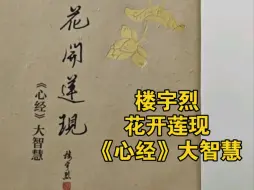 花開蓮現
《心经》大智慧
楼宇烈
楼宇烈
花开莲现
《心经》大智慧